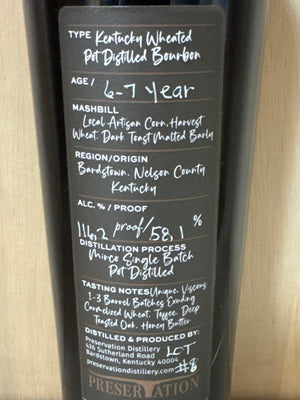 TYPE Kentucky Wheated
Pot Distilled Bourbon
AGE / 6-7 year
MASHBILL
Local Artisan Corn, Harvest
Wheat, Dark Toast Malted Barly
REGION/ORIGIN
Bardstown, Nelson County
Kentucky
ALC. % / PROOF
116,2 proof/58,1 %
DISTILLATION PROCESS
Mirco Single Batch
Pot Distilled
TASTING NOTES Unique, Viscous
1-3 Barrel Batches Exuding
Carmelized Wheat, Toffee, Deep
Toasted Oak, Honey Butter
DISTILLED & PRODUCED BY:
Preservation Distillery
426 Sutherland Road
Bardstown, Kentucky 40004
preservationdistillery.com
LOT
#8
PRESERVATION